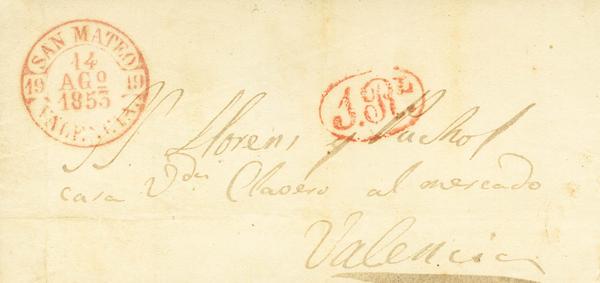 SAN MATEO
14
19 AGO 19
1853
VALENCIA.
1.RL
Srs Llorens y Puchol
casa Vda Clavero al mercado
Valencia